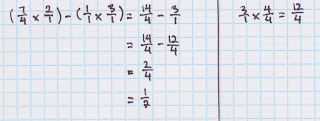 (7/4 x 2/1) - (1/1 x 3/1) = 14/4 - 3/1
= 14/4 - 12/4
= 2/4
= 1/2
3/1 x 4/4 = 12/4